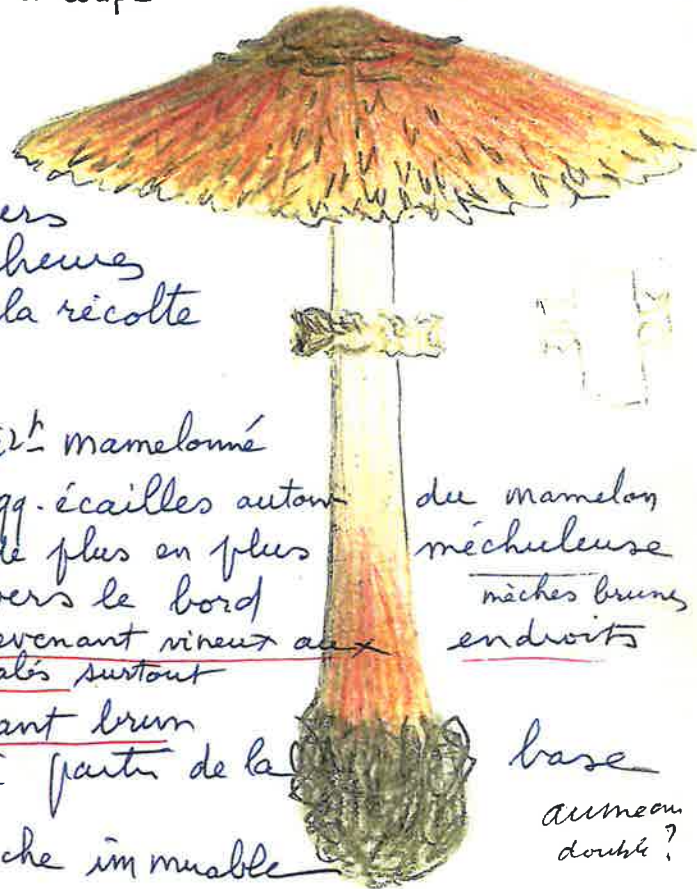 coupe
heures
la récolte
mamelonné
écailles autour du mamelon
de plus en plus méchuleuse
vers le bord mèches brunes
devenant vineux aux endroits
surtout
brun
partir de la base
anneau
double ?
immuable